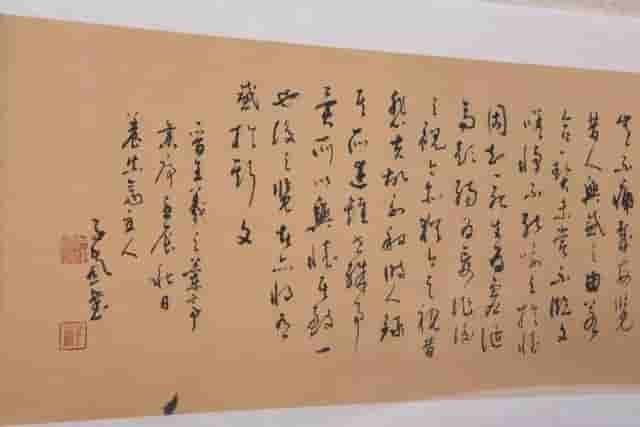 豈不痛哉每覽
昔人興感之由若
合一契未嘗不臨文
嗟悼不能喻之於懷
固知一死生為虛誕
齊彭殤為妄作後
之視今亦猶今之視昔
悲夫故列敘時人錄
其所述雖世殊事
異所以興懷其致一
也後之覽者亦將有
感於斯文
晉王羲之蘭亭
集序壬辰秋日
主人
書